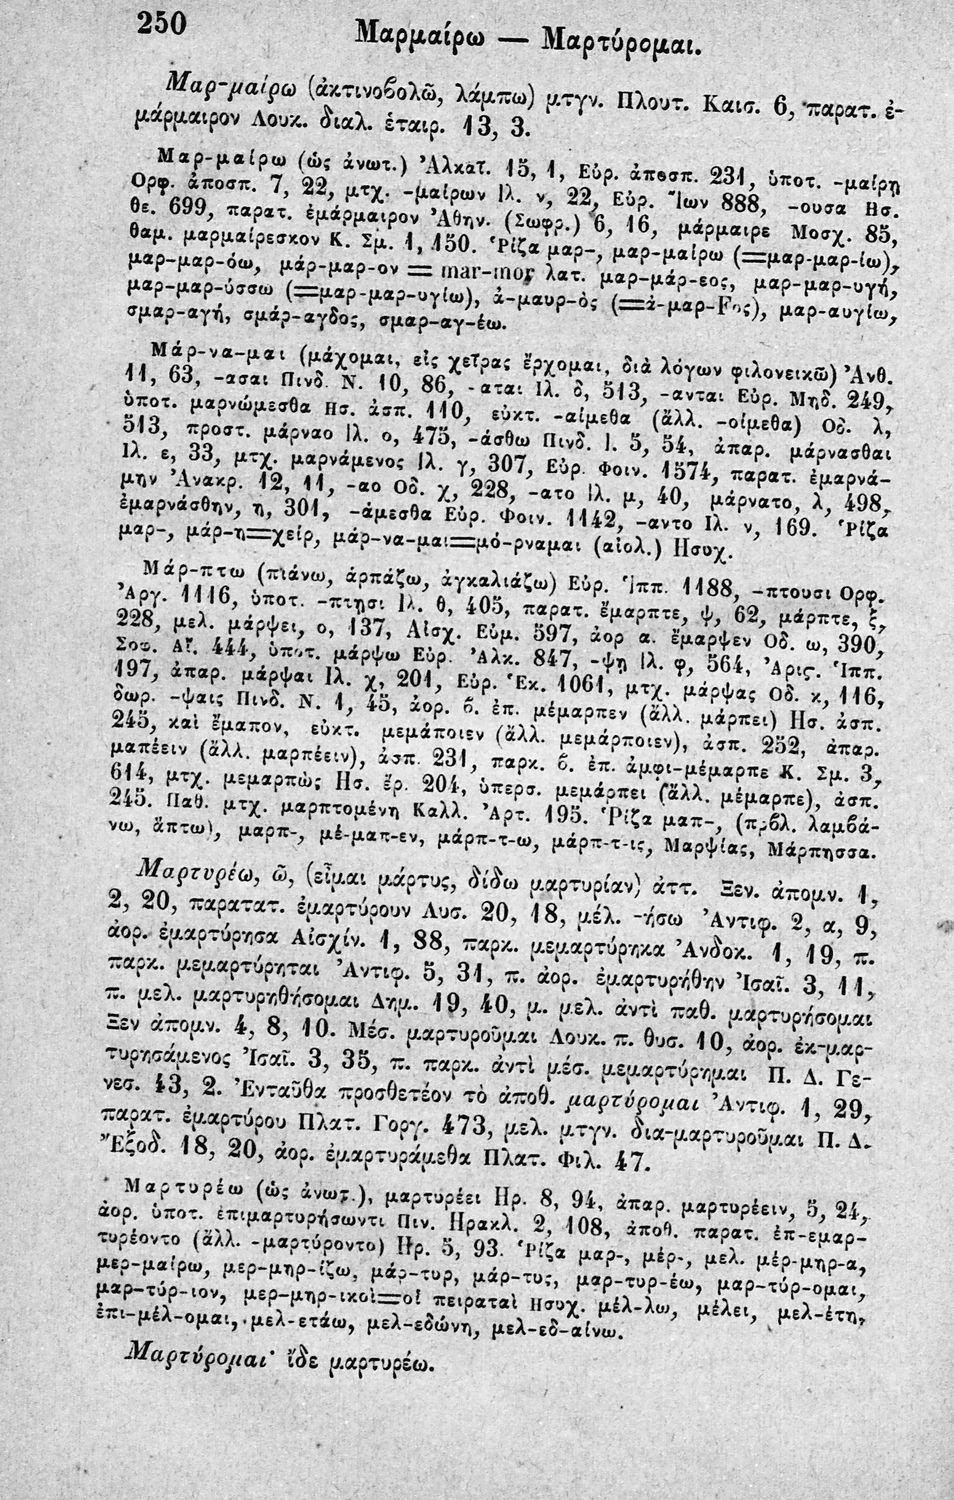 250
Μαρμαίρω — Μαρτύρομαι.
Μαρ-μαίρω (ἀκτινοβολῶ, λάμπω) μτγν. Πλουτ. Καισ. 6, παρατ. ἐ-
μάρμαιρον Λουκ. διαλ. ἑταιρ. 13, 3.
Μαρ-μαίρω (ὡς ἀνωτ.) Ἀλκαῖ. 15, 1, Εὐρ. ἀποσπ. 231, ὑποτ. -μαίρῃ
Ορφ. ἀποσπ. 7, 22, μτχ. -μαίρων Ιλ. ν, 22, Εὐρ. Ἴων 888, -ουσα Ησ.
θε. 699, παρατ. ἐμάρμαιρον Ἀθην. (Σωφρ.) 6, 16, μάρμαιρε Μοσχ. 85,
θαμ. μαρμαίρεσκον Κ. Σμ. 1, 150. Ῥίζα μαρ-, μαρ-μαίρω (=μαρ-μαρ-ίω),
μαρ-μαρ-όω, μάρ-μαρ-ον = mar-mor λατ. μαρ-μάρ-εος, μαρ-μαρ-υγή,
μαρ-μαρ-ύσσω (=μαρ-μαρ-υγίω), ἀ-μαυρ-ὸς (=ἀ-μαρ-Fος), μαρ-αυγίω,
σμαρ-αγή, σμάρ-αγδος, σμαρ-αγ-έω.
Μάρ-να-μαι (μάχομαι, εἰς χεῖρας ἔρχομαι, διὰ λόγων φιλονεικῶ) Ἀνθ.
11, 63, -ασαι Πινδ. Ν. 10, 86, -αται Ιλ. δ, 513, -ανται Εὐρ. Μηδ. 249,
ὑποτ. μαρνώμεσθα Ησ. ἀσπ. 110, εὐκτ. -αίμεθα (ἄλλ. -οίμεθα) Οδ. λ,
513, προστ. μάρναο Ιλ. ο, 475, -άσθω Πινδ. Ι. 5, 54, ἀπαρ. μάρνασθαι
Ιλ. ε, 33, μτχ. μαρνάμενος Ιλ. γ, 307, Εὐρ. Φοιν. 1574, παρατ. ἐμαρνά-
μην Ἀνακρ. 12, 11, -αο Οδ. χ, 228, -ατο Ιλ. μ, 40, μάρνατο, λ, 498,
ἐμαρνάσθην, η, 301, -άμεσθα Εὐρ. Φοιν. 1142, -αντο Ιλ. ν, 169. Ῥίζα
μαρ-, μάρ-η=χείρ, μάρ-να-μαι=μό-ρναμαι (αἰολ.) Ησυχ.
Μάρ-πτω (πιάνω, ἁρπάζω, ἀγκαλιάζω) Εὐρ. Ἱππ. 1188, -πτουσι Ορφ.
Ἀργ. 1116, ὑποτ. -πτῃσι Ιλ. θ, 405, παρατ. ἔμαρπτε, ψ, 62, μάρπτε, ξ,
228, μελ. μάρψει, ο, 137, Αἰσχ. Εὐμ. 597, ἀορ α. ἔμαρψεν Οδ. ω, 390,
Σοφ. Αἴ. 444, ὑποτ. μάρψω Εὐρ. Ἀλκ. 847, -ψῃ Ιλ. φ, 564, Ἀρις. Ἱππ.
197, ἀπαρ. μάρψαι Ιλ. χ, 201, Εὐρ. Ἑκ. 1061, μτχ. μάρψας Οδ. κ, 116,
δωρ. -ψαις Πινδ. Ν. 1, 45, ἀορ. β. ἐπ. μέμαρπεν (ἄλλ. μάρπει) Ησ. ἀσπ.
245, καὶ ἔμαπον, εὐκτ. μεμάποιεν (ἄλλ. μεμάρποιεν), ἀσπ. 252, ἀπαρ.
μαπέειν (ἄλλ. μαρπέειν), ἀσπ. 231, παρκ. β. ἐπ. ἀμφι-μέμαρπε Κ. Σμ. 3,
614, μτχ. μεμαρπὼς Ησ. ἔρ. 204, ὑπερσ. μεμάρπει (ἄλλ. μέμαρπε), ἀσπ.
245. Παθ. μτχ. μαρπτομένη Καλλ. Ἀρτ. 195. Ῥίζα μαπ-, (πρβλ. λαμβά-
νω, ἅπτω), μαρπ-, μέ-μαπ-εν, μάρπ-τ-ω, μάρπ-τ-ις, Μαρψίας, Μάρπησσα.
Μαρτυρέω, ῶ, (εἶμαι μάρτυς, δίδω μαρτυρίαν) ἀττ. Ξεν. ἀπομν. 1,
2, 20, παρατατ. ἐμαρτύρουν Λυσ. 20, 18, μέλ. -ήσω Ἀντιφ. 2, α, 9,
ἀορ. ἐμαρτύρησα Αἰσχίν. 1, 88, παρκ. μεμαρτύρηκα Ἀνδοκ. 1, 19, π.
παρκ. μεμαρτύρηται Ἀντιφ. 5, 31, π. ἀορ. ἐμαρτυρήθην Ἰσαῖ. 3, 11,
π. μελ. μαρτυρηθήσομαι Δημ. 19, 40, μ. μελ. ἀντὶ παθ. μαρτυρήσομαι
Ξεν ἀπομν. 4, 8, 10. Μέσ. μαρτυροῦμαι Λουκ. π. θυσ. 10, ἀορ. ἐκ-μαρ-
τυρησάμενος Ἰσαῖ. 3, 35, π. παρκ. ἀντὶ μέσ. μεμαρτύρημαι Π. Δ. Γε-
νεσ. 43, 2. Ἐνταῦθα προσθετέον τὸ ἀποθ. μαρτύρομαι Ἀντιφ. 1, 29,
παρατ. ἐμαρτύρου Πλατ. Γοργ. 473, μελ. μτγν. δια-μαρτυροῦμαι Π. Δ.
Ἔξοδ. 18, 20, ἀορ. ἐμαρτυράμεθα Πλατ. Φιλ. 47.
Μαρτυρέω (ὡς ἀνωτ.), μαρτυρέει Ηρ. 8, 94, ἀπαρ. μαρτυρέειν, 5, 24,
ἀορ. ὑποτ. ἐπιμαρτυρήσωντι Πιν. Ηρακλ. 2, 108, ἀποθ. παρατ. ἐπ-εμαρ-
τυρέοντο (ἄλλ. -μαρτύροντο) Ηρ. 5, 93. Ῥίζα μαρ-, μέρ-, μελ. μέρ-μηρ-α,
μερ-μαίρω, μερ-μηρ-ίζω, μάρ-τυρ, μάρ-τυς, μαρ-τυρ-έω, μαρ-τύρ-ομαι,
μαρ-τύρ-ιον, μερ-μηρ-ικοὶ=οἱ πειραταὶ Ησυχ. μέλ-λω, μέλει, μελ-έτη,
ἐπι-μέλ-ομαι, μελ-ετάω, μελ-εδώνη, μελ-εδ-αίνω.
Μαρτύρομαι· ἴδε μαρτυρέω.